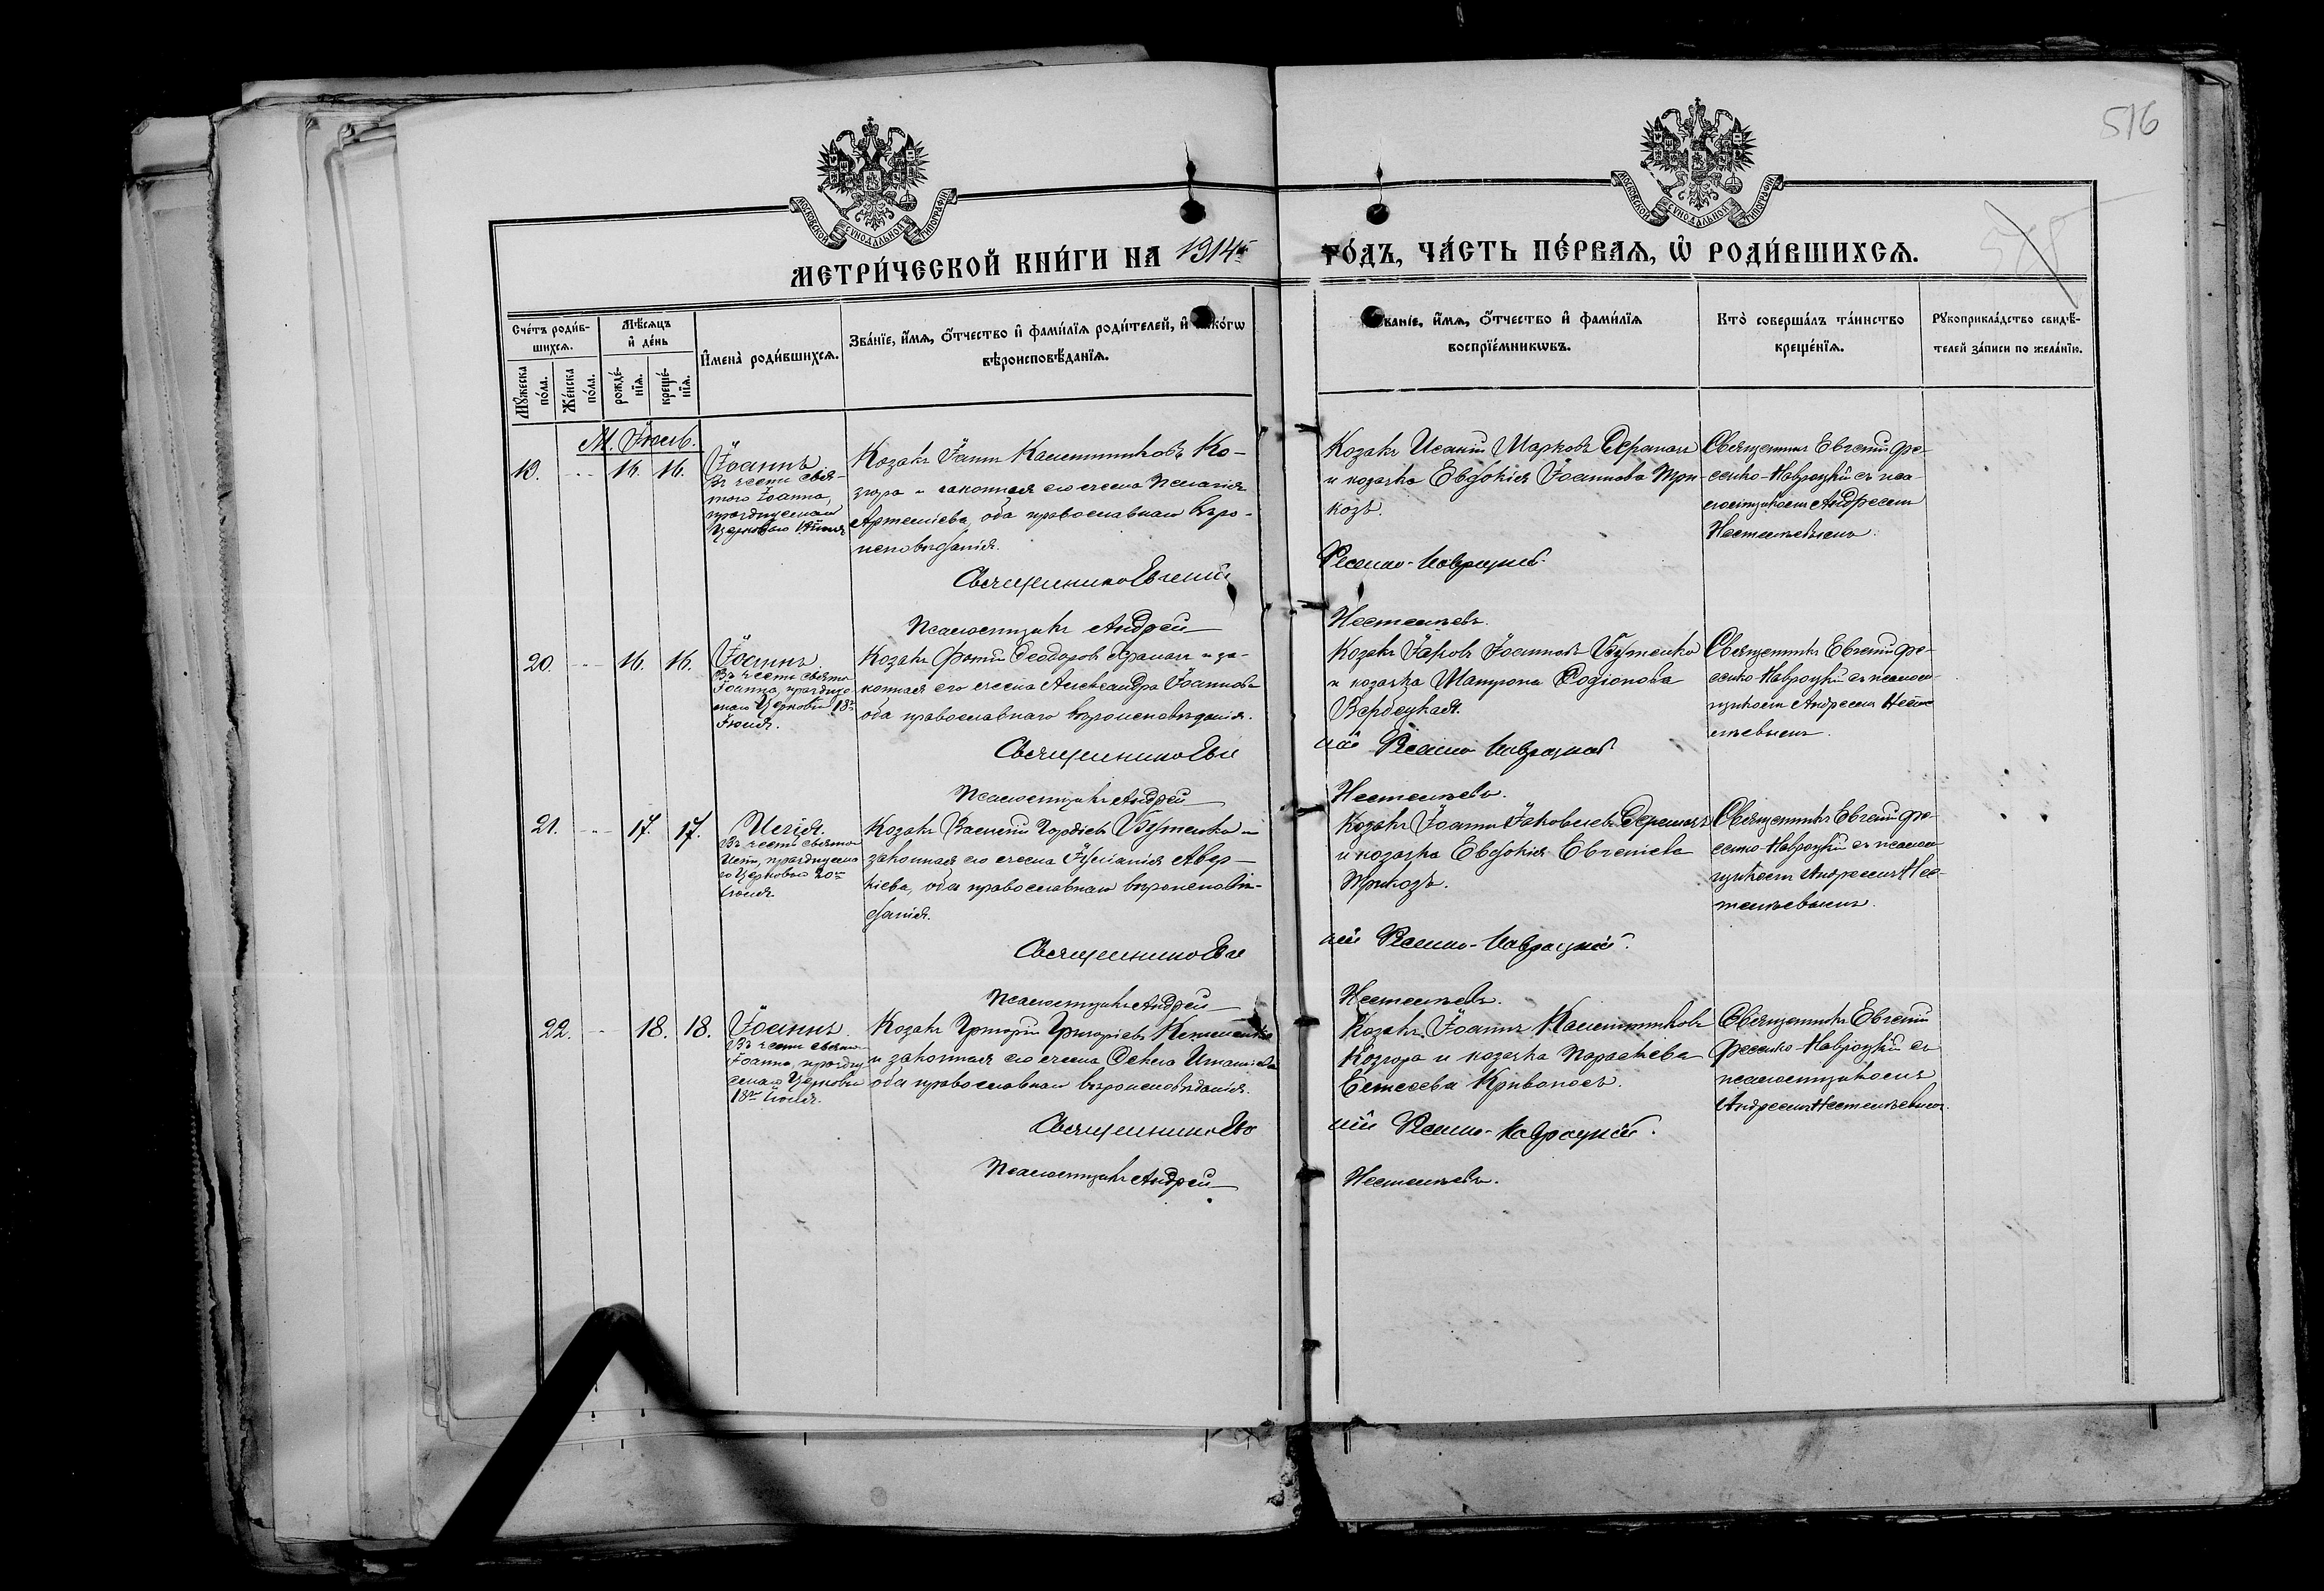 516
МОСКОВСКОЙ СУНОДАЛЬНОЙ ТИПОГРАФІИ
МОСКОВСКОЙ СУНОДАЛЬНОЙ ТИПОГРАФІИ
МЕТРИ́ЧЕСКОЙ КНИ́ГИ НА 1914й
ГО́ДЪ, ЧА́СТЬ ПЕ́РВАѦ, Ѡ҆ РОДИ́ВШИХСѦ.
Сче́тъ роди́в-
шихсѧ.
Мꙋ́жеска по́ла.
Же́нска по́ла.
Мѣ́сѧцъ и҆ де́нь
рожде́-
нїѧ.
креще́-
нїѧ.
И҆мена̀ роди́вшихсѧ.
Зва́нїе, и҆́мѧ, ѻ҆́тчество и҆ фами́лїѧ роди́телей, и҆ како́гѡ
вѣроисповѣ́данїѧ.
Зва́нїе, и҆́мѧ, ѻ҆́тчество и҆ фами́лїѧ
воспрїе́мникѡвъ.
Кто̀ соверша́лъ та́инство
креще́нїѧ.
Рꙋкоприкла́дство свидѣ́-
телей за́писи по жела́нїю.
М. Іюль.
19.
16. 16.
Іоаннъ
Въ честь свя-
того Іоанна,
празднуемаго
Церковью
Козакъ Іоаннъ Каллинниковъ Ко-
згора и законная его жена Пелагія
Артеміева, оба православнаго вѣро-
исповѣданія.
Священникъ Евгеній
Псаломщикъ Андрей
Козакъ Исакій Марковъ
и козачка Евдокія Іоаннова При-
козъ.
Фесенко-Навроцкій.
Нестелѣевъ.
Священникъ Евгеній Фе-
сенко-Навроцкій съ пса-
ломщикомъ Андреемъ
20.
16. 16.
Іоаннъ.
Въ честь святого
Іоанна, праздну
емаго Церковью 18го
Іюля.
Козакъ Фотій Ѳеодоровъ и за-
конная его жена Александра Іоаннова
оба православнаго вѣроисповѣданія.
Священникъ Евге
Псаломщикъ Андрей
Козакъ Іаковъ Іоанновъ Бутенко
и козачка Матрона Родіонова
Вербецкая.
ній Фесенко Навроцкій
Священникъ Евгеній Фе-
сенко-Навроцкій съ псалом-
щикомъ Андреемъ
21.
17. 17.
Илія.
Въ честь святого
Иліи, празднуема
го Церковью 20го
Іюля.
Козакъ Василій Гордіевъ Бутенко и
законная его жена Іуліанія Авер-
кіева, оба православнаго вѣроисповѣ-
данія.
Священникъ Евге
Псаломщикъ Андрей
Козакъ Іоаннъ Іаковлевъ
и козачка Евдокія Евгеніева
Прикозъ.
ній Фесенко-Навроцкій.
Священникъ Евгеній Фе-
сенко-Навроцкій съ псалом-
щикомъ Андреемъ
22.
18. 18.
Іоаннъ.
Въ честь святого
Іоанна, праздну
емаго Церковью
18го Іюля.
Козакъ Григорій Григоріевъ
и законная его жена Ѳекла
оба православнаго вѣроисповѣданія.
Священникъ Евге
Псаломщикъ Андрей
Козакъ Іоаннъ Каллинниковъ
Козгора и козачка Параскева
Кривоносъ.
ній Фесенко-Навроцкій.
Священникъ Евгеній
Фесенко-Навроцкій съ
псаломщикомъ
Андреемъ